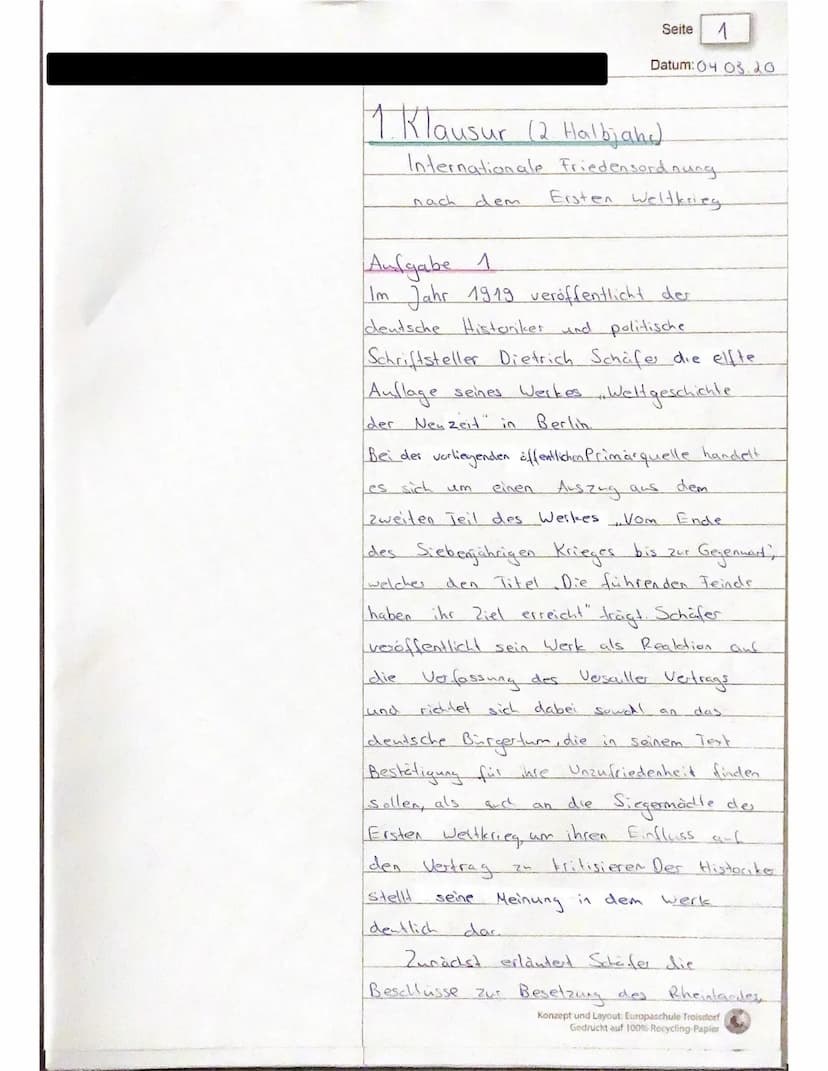 Seite 1
Datum: 04.03.20
1. Klausur (2. Halbjahr)
Internationale Friedensordnung
nach dem Ersten Weltkrieg
Aufgabe 1
Im Jahr 1919 veröffentlicht der
deutsche Historiker und politische
Schriftsteller Dietrich Schäfer die elfte
Auflage seines Werkes „Weltgeschichte
der Neuzeit" in Berlin.
Bei der vorliegenden öffentlichen Primärquelle handelt
es sich um einen Auszug aus dem
zweiten Teil des Werkes „Vom Ende
des Siebenjährigen Krieges bis zur Gegenwart",
welches den Titel „Die führenden Feinde
haben ihr Ziel erreicht" trägt. Schäfer
veröffentlicht sein Werk als Reaktion auf
die Verfassung des Versailler Vertrags
und richtet sich dabei sowohl an das
deutsche Bürgertum, die in seinem Text
Bestätigung für ihre Unzufriedenheit finden
sollen, als auch an die Siegermächte des
Ersten Weltkrieg, um ihren Einfluss auf
den Vertrag zu kritisieren. Der Historiker
stellt seine Meinung in dem Werk
deutlich dar.
Zunächst erläutert Schäfer die
Beschlüsse zur Besetzung des Rheinlandes,
Konzept und Layout: Europaschule Troisdorf
Gedruckt auf 100% Recycling-Papier